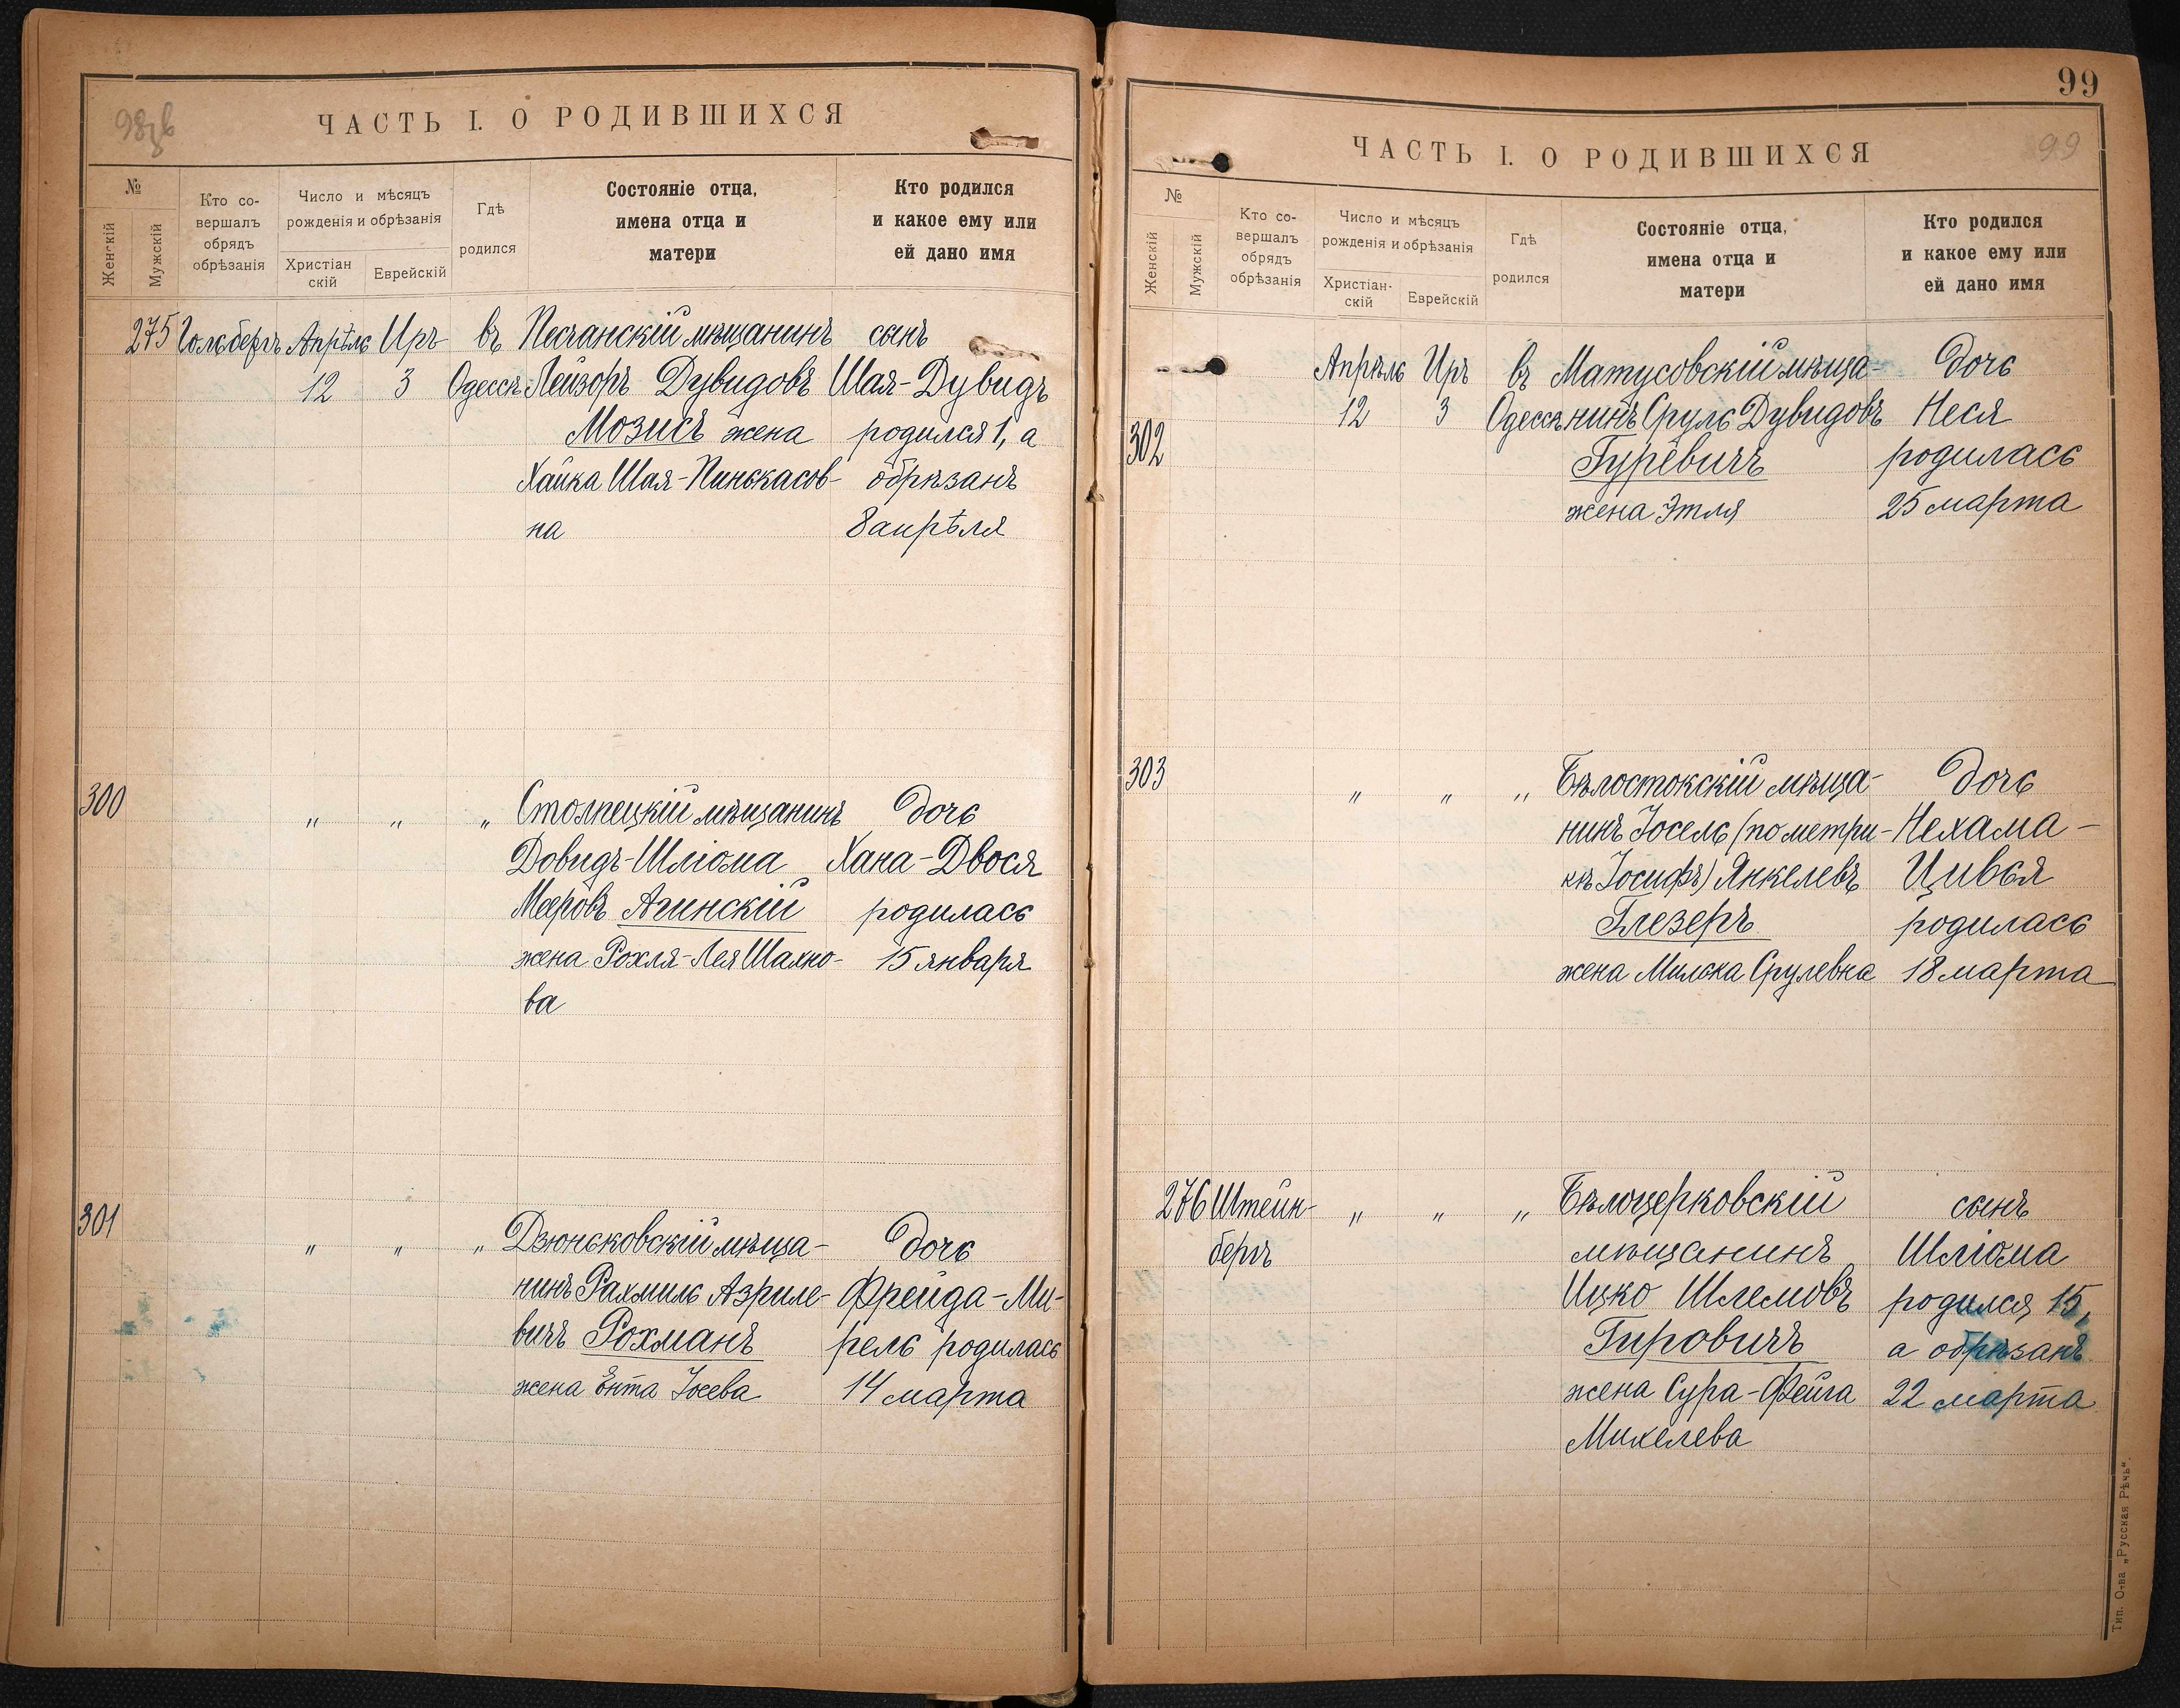 98зв
ЧАСТЬ I. О РОДИВШИХСЯ
№
Женскій
Мужскій
Кто со-
вершалъ
обрядъ
обрѣзанія
Число и мѣсяцъ
рожденія и обрѣзанія
Христіан
скій
Еврейскій
Гдѣ
родился
Состояніе отца,
имена отца и
матери
Кто родился
и какое ему или
ей дано имя
275 Гольсбергъ Апрѣль Иръ въ Песчанскій мѣщанинъ сынъ
12 3 Одессѣ Лейзоръ Дувидовъ Шая-Дувидъ
Мозисъ жена родился 1, а
Хайка Шая-Пинькасов- обрѣзанъ
на 8 апрѣля
300 " " " Столпецкій мѣщанинъ дочь
Довидъ-Шліома Хана-Двося
Мееровъ Агинскій родилась
жена Рохля-Лея Шахно- 15 января
ва
301 " " " Дзюньковскій мѣща- дочь
нинъ Рахмиль Азриле- Фрейда-Ми-
вичъ Рохманъ рель родилась
жена Ента Іосева 14 марта
99
99
ЧАСТЬ I. О РОДИВШИХСЯ
№
Женскій
Мужскій
Кто со-
вершалъ
обрядъ
обрѣзанія
Число и мѣсяцъ
рожденія и обрѣзанія
Христіан-
скій
Еврейскій
Гдѣ
родился
Состояніе отца,
имена отца и
матери
Кто родился
и какое ему или
ей дано имя
Апрѣль Иръ въ Матусовскій мѣща- дочь
12 3 Одессѣ нинъ Сруль Дувидовъ Неся
302 Гуревичъ родилась
жена Этля 25 марта
303 " " " Бѣлостокскій мѣща- дочь
нинъ Іосель (по метри- Нехама-
кѣ Іосифъ) Янкелевъ Цивья
Глезеръ родилась
жена Милька Срулевна 18 марта
276 Штейн- " " " Бѣлоцерковскій сынъ
бергъ мѣщанинъ Шліома
Ицко Шлемовъ родился 15,
Гировичъ а обрѣзанъ
жена Сура-Фейга 22 марта
Михелева
Тип. О-ва „Русская Рѣчь“.